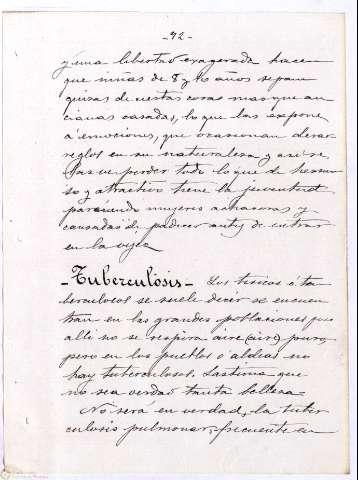 -92-
y una libertad exagerada hacen
que niñas de 8 y 10 años sepan
quizas de ciertas cosas mas que an
cianas casadas, lo que las expone
a emociones, que ocasionan desar
reglos en su naturaleza y asi se
las ve perder todo lo que de hermo
so y atractivo tiene la juventud
pareciendo mujeres achacosas y
cansadas de padecer antes de entrar
en la vejez
-Tuberculosis- Los tisicos ó tu
berculosos se suele decir se encuen
tran en las grandes poblaciones que
alli no se respira aire (aire) puro,
pero en los pueblos ó aldeas no
hay tuberculosos. Lastima que
no sea verdad tanta belleza.
No será en verdad, la tuber
culosis pulmonar, frecuente en